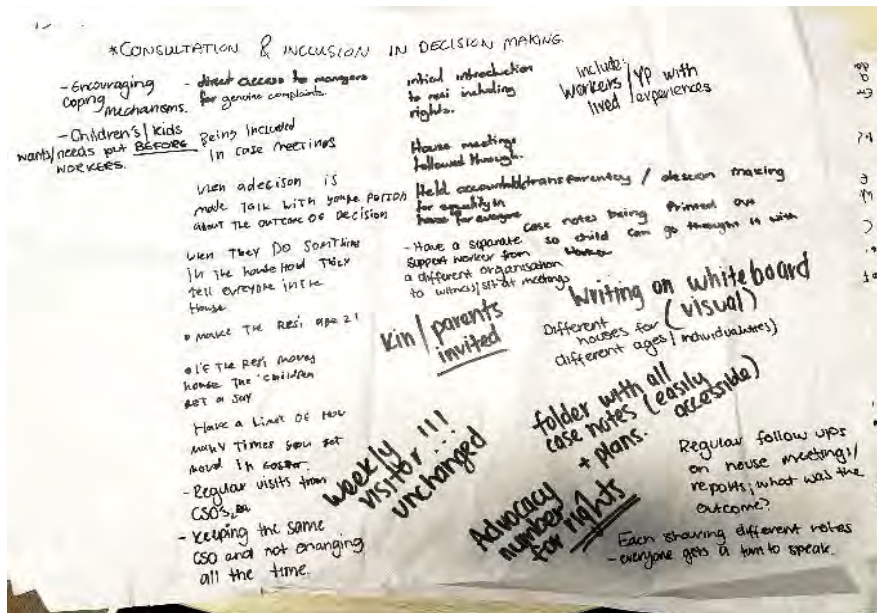 *CONSULTATION & INCLUSION IN DECISION MAKING.
- Encouraging
coping
mechanisms.
- Children's/kids
wants/needs put BEFORE
WORKERS.
- direct access to managers
for genuine complaints.
Being Included
In case meetings
when a decison is
made Talk with young person
about The outcome of Decision
when They DO Something
in the household They
tell everyone in the
House
• make The Resi age 21
• if The Resi moves
house The children
get a say
Have a Limit of How
many Times you get
moved in foster.
- Regular visits from
CSO's,
- Keeping the same
CSO and not changing
all the time.
initial introduction
to resi including
rights.
House meetings
followed through.
Held accountable/transparency / desicion making
for equality in
house for everyone
case notes being Printed out
so child can go through it with
- Have a separate
support worker from
a different organisation
to witness/sit at meetings
include:
Workers/YP with
lived experiences
Kin/parents
invited
Writing on whiteboard
(visual)
Different
houses for
different ages/individualities)
folder with all
case notes (easily
accessible)
+ plans.
weekly
visitor!!!
unchanged
Advocacy
number
for rights
Regular follow ups
on house meetings/
reports; what was the
outcome?
Each sharing different notes
- everyone gets a turn to speak.